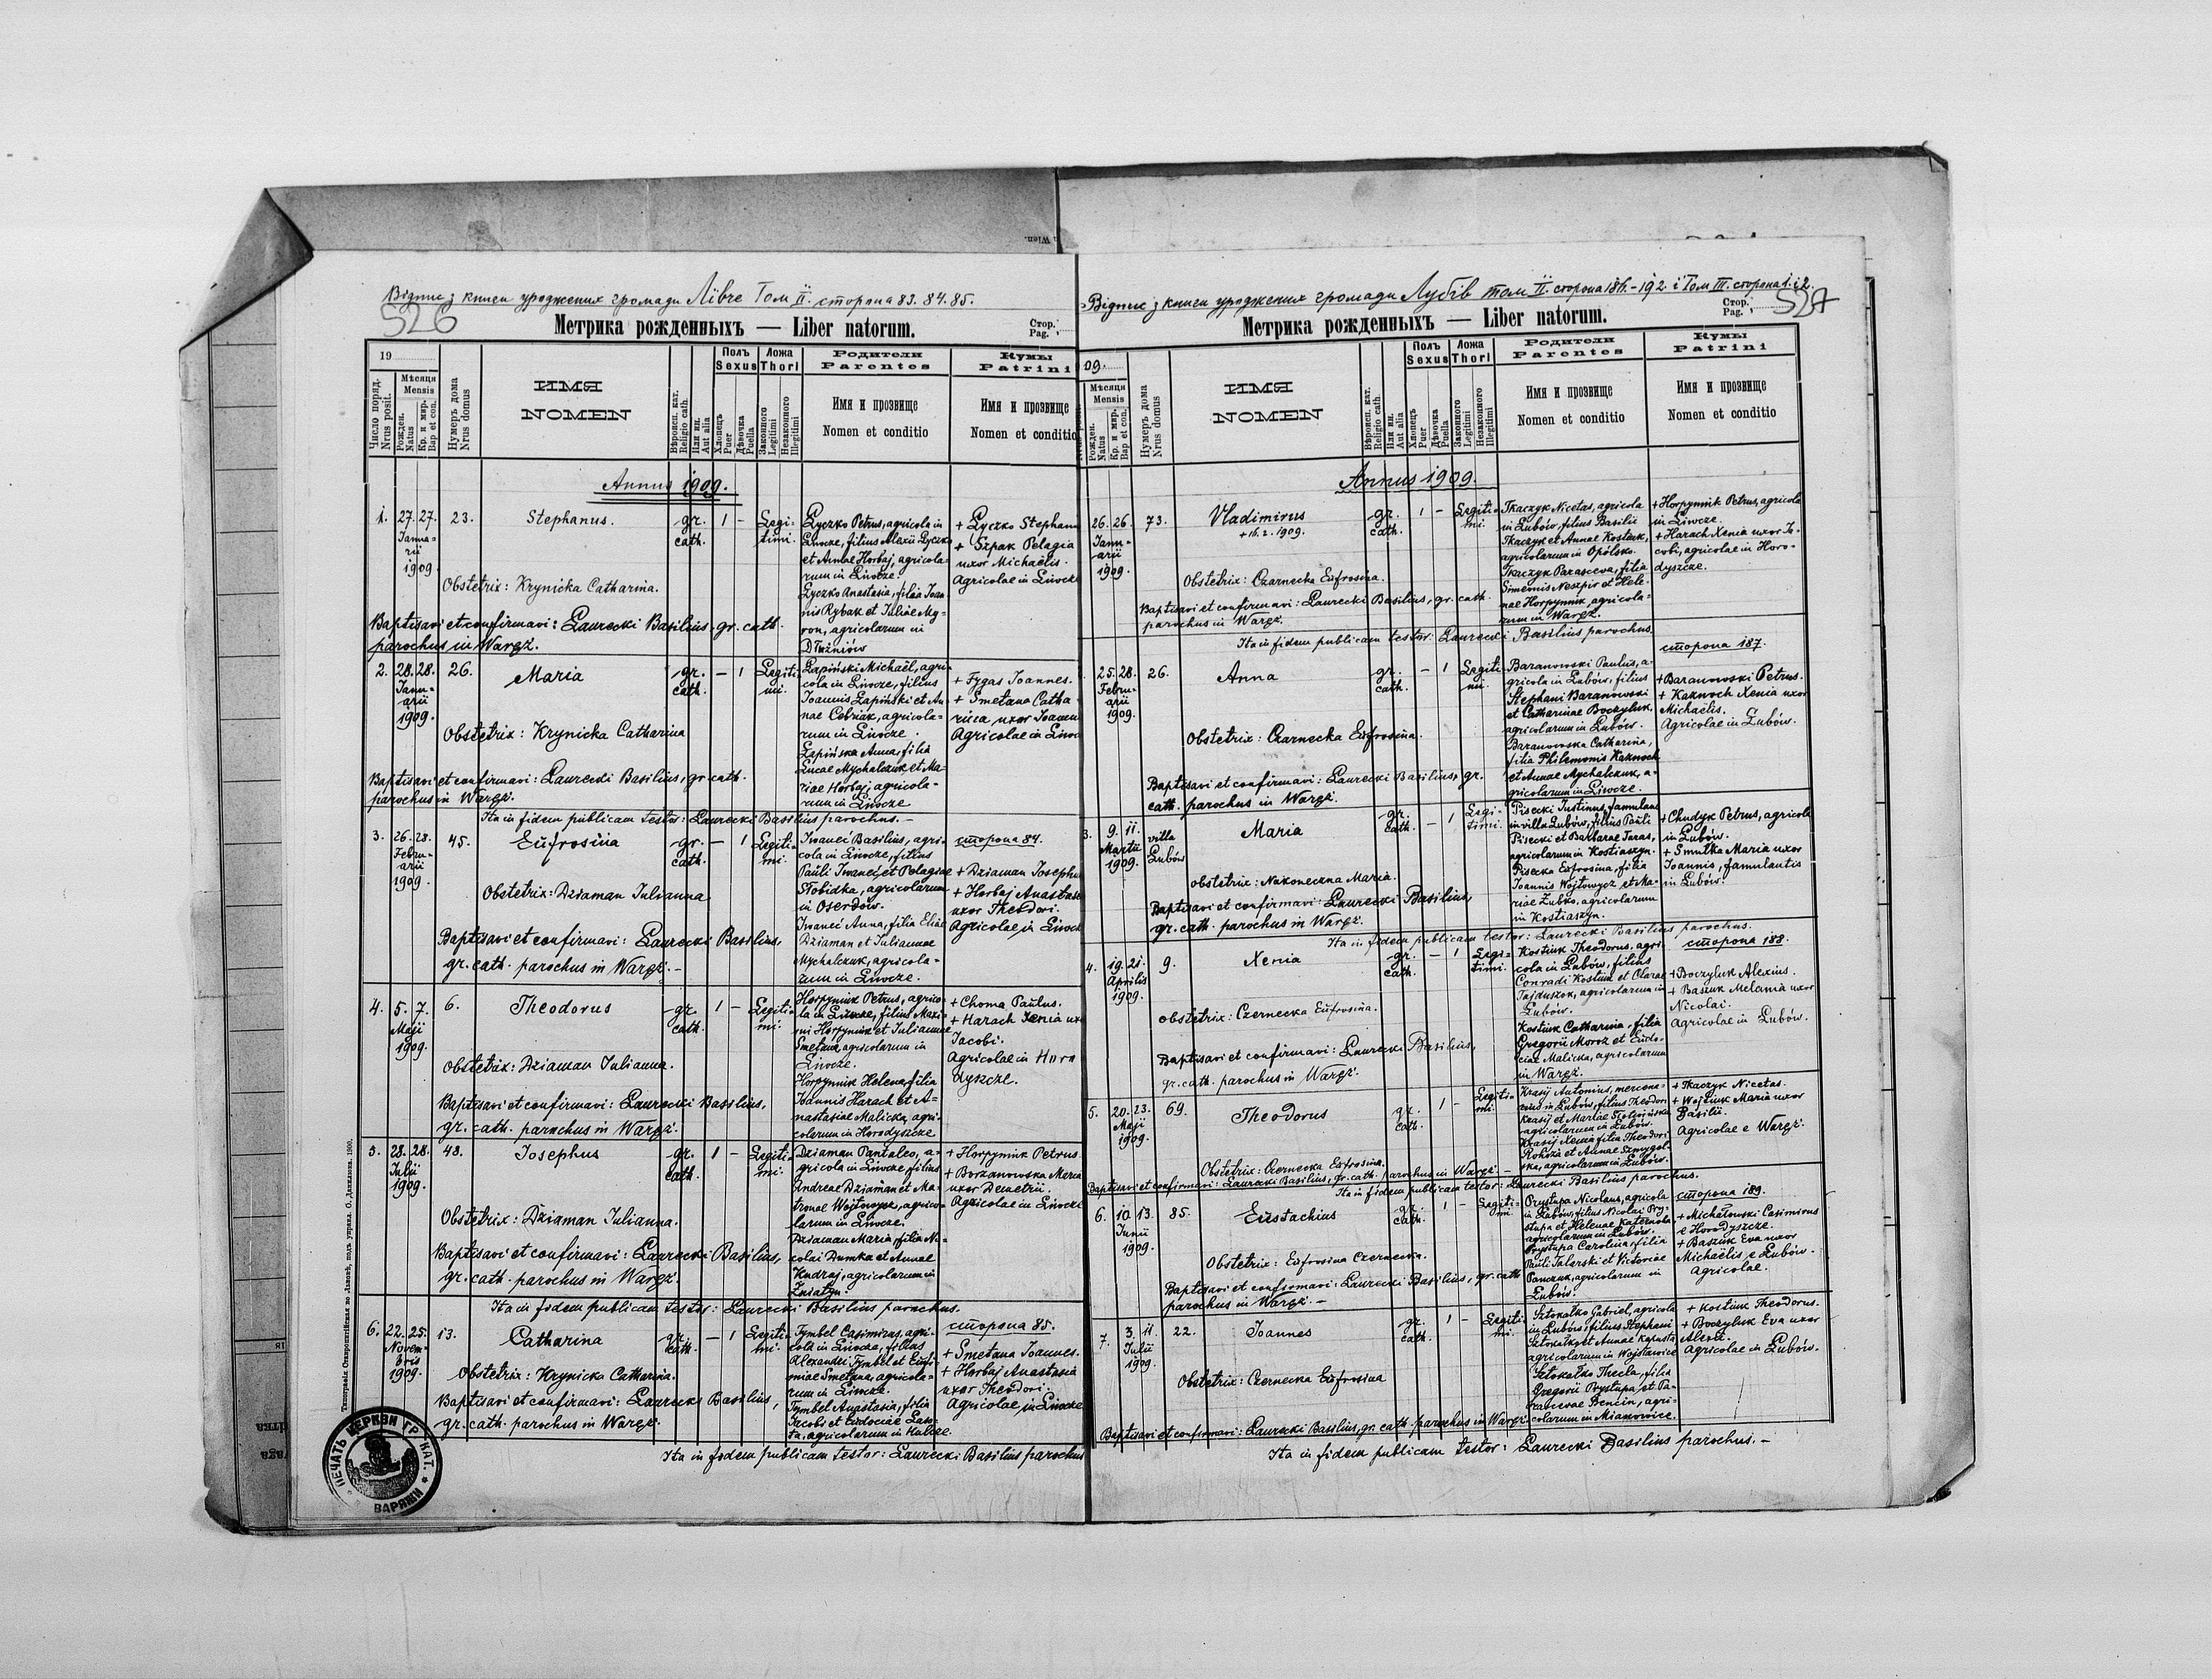 Відпис з книги уроджених громади Лівче Том II. сторона 83. 84. 85.
526
Метрика рожденныхъ — Liber natorum.
Стор.
Pag.
19
Число поряд.
Nrus posit.
Мѣсяця
Mensis
Рожден.
Natus
Кр. и мир.
Bap et con.
Нумеръ дома
Nrus domus
ИМЯ
NOMEN
Вѣроисп. кат.
Religio cath.
Или ин.
Aut alia
Полъ
Sexus
Хлопецъ
Puer
Дѣвочка
Puella
Ложа
Thori
Законного
Legitimi
Незаконного
Illegitimi
Родители
Parentes
Имя и прозвище
Nomen et conditio
Кумы
Patrini
Имя и прозвище
Nomen et conditio
Annus 1909.
1. 27. 27. Januarii 1909. 23. Stephanus. gr. cath. 1 – Legitimi.
Łyczko Petrus, agricola in
Liwcze, filius Alexii Łyczko
et Annae Horbaj, agricola-
rum in Liwcze.
Łyczko Anastasia, filia Ioan-
nis Rybak et Iuliae My-
ron, agricolarum in
Dłużniów
+ Łyczko Stephan
+ Szpak Pelagia
uxor Michaelis.
Agricolae in Liwcze
Obstetrix: Krynicka Catharina.
Baptisavi et confirmavi: Ławrecki Basilius, gr. cath.
parochus in Waręż.
2. 28. 28. Januarii 1909. 26. Maria gr. cath. – 1 Legitimi.
Łapiński Michaël, agri-
cola in Liwcze, filius
Ioannis Łapiński et An-
nae Cebriak, agricola-
rum in Liwcze.
Łapińska Anna, filia
Lucae Mychalczuk et Ma-
riae Horbaj, agricola-
rum in Liwcze
+ Fygas Ioannes.
+ Smetana Catha
rina uxor Ioann
Agricolae in Liwc
Obstetrix: Krynicka Catharina
Baptisavi et confirmavi: Ławrecki Basilius, gr. cath.
parochus in Waręż.
Ita in fidem publicam testor: Ławrecki Basilius parochus. –
3. 26. 28. Februarii 1909. 45. Eufrosina gr. cath. – 1 Legitimi.
Iwaneć Basilius, agri-
cola in Liwcze, filius
Pauli Iwaneć et Pelagiae
Słobidka, agricolarum
in Oserdów.
Iwaneć Anna, filia Eliae
Dziaman et Iuliannae
Mychalczuk, agricola-
rum in Liwcze.
сторона 84.
+ Dziaman Iosephu
+ Horbaj Anastas
uxor Theodori.
Agricolae in Liwcz
Obstetrix: Dziaman Iulianna
Baptisavi et confirmavi: Ławrecki Basilius,
gr. cath. parochus in Waręż. –
4. 5. 7. Maji 1909. 6. Theodorus gr. cath. 1 – Legitimi.
Horpyniuk Petrus, agrico-
la in Liwcze, filius Maxi-
mi Horpyniuk et Iuliannae
Smetana, agricolarum in
Liwcze.
Horpyniuk Helena, filia
Ioannis Harach et A-
nastasiae Malicka, agri-
colarum in Horodyszcze
+ Choma Paulus.
+ Harach Xenia ux
Iacobi.
Agricolae in Horo
dyszcze.
Obstetrix: Dziaman Iulianna.
Baptisavi et confirmavi: Ławrecki Basilius,
gr. cath. parochus in Waręż.
5. 28. 28. Iulii 1909. 48. Iosephus gr. cath. 1 – Legitimi.
Dziaman Pantaleo, a-
gricola in Liwcze, filius
Andreae Dziaman et Ma-
tronae Wojtowycz, agrico-
larum in Liwcze.
Dziaman Maria, filia Ni-
colai Dumka et Annae
Kudraj, agricolarum in
Żniatyn.
+ Horpyniuk Petrus
+ Borzanowska Maria
uxor Demetrii.
Agricolae in Liwcze
Obstetrix: Dziaman Iulianna.
Baptisavi et confirmavi: Ławrecki Basilius,
gr. cath. parochus in Waręż.
Ita in fidem publicam testor: Ławrecki Basilius parochus.
6. 22. 25. Novembris 1909. 13. Catharina gr. cath. – 1 Legitimi.
Tymbel Casimirus, agri-
cola in Liwcze, filius
Alexandri Tymbel et Eufi-
miae Smetana, agricola-
rum in Liwcze.
Tymbel Anastasia, filia
Iacobi et Eudociae Laso-
ta, agricolarum in Hulcze.
сторона 85.
+ Smetana Ioannes.
+ Horbaj Anastasia
uxor Theodori.
Agricolae in Liwcze
Obstetrix: Krynicka Catharina.
Baptisavi et confirmavi: Ławrecki Basilius,
gr. cath. parochus in Waręż.
Ita in fidem publicam testor: Ławrecki Basilius parochus
ПЕЧАТЬ ЦЕРКВИ ГР. КАТ. ВАРЯЖИ
Відпис з книги уроджених громади Лубів том II. сторона 186.-192. і Том III. сторона 1. і 2.
527
Метрика рожденныхъ — Liber natorum.
Стор.
Pag.
09.
Мѣсяця
Mensis
Рожден.
Natus
Кр. и мир.
Bap et con.
Нумеръ дома
Nrus domus
ИМЯ
NOMEN
Вѣроисп. кат.
Religio cath.
Или ин.
Aut alia
Полъ
Sexus
Хлопецъ
Puer
Дѣвочка
Puella
Ложа
Thori
Законного
Legitimi
Незаконного
Illegitimi
Родители
Parentes
Имя и прозвище
Nomen et conditio
Кумы
Patrini
Имя и прозвище
Nomen et conditio
Annus 1909.
26. 26. Januarii 1909. 73. Vladimirus gr. cath. 1 – Legitimi.
+ 16. 2. 1909.
Tkaczyk Nicetas, agricola
in Lubów, filius Basilii
Tkaczyk et Annae Kostiuk,
agricolarum in Opólsko.
Tkaczyk Parasceva, filia
Simeonis Neszpir et Hele-
nae Horpyniuk, agricola-
rum in Waręż.
+ Horpyniuk Petrus, agricola
in Liwcze.
+ Harach Xenia uxor Ia-
cobi, agricolae in Horo-
dyszcze.
Obstetrix: Czarnecka Eufrosina.
Baptisavi et confirmavi: Ławrecki Basilius, gr. cath.
parochus in Waręż.
Ita in fidem publicam testor: Ławrecki Basilius parochus.
25. 28. Februarii 1909. 26. Anna gr. cath. – 1 Legitimi.
Baranowski Paulus, a-
gricola in Lubów, filius
Stephani Baranowski
et Catharinae Boczyluk,
agricolarum in Lubów.
Baranowska Catharina,
filia Philemonis Kaznoch
et Annae Mychalczuk, a-
gricolarum in Liwcze.
сторона 187.
+ Baranowski Petrus.
+ Kaznoch Xenia uxor
Michaëlis.
Agricolae in Lubów.
Obstetrix: Czarnecka Eufrosina.
Baptisavi et confirmavi: Ławrecki Basilius, gr.
cath. parochus in Waręż.
3. 9. 11. Martii 1909. villa Lubów Maria gr. cath. – 1 Legitimi.
Pisecki Iustinus, famulans
in villa Lubów, filius Pauli
Pisecki et Barbarae Taras,
agricolarum in Kostiaszyn.
Pisecka Eufrosina, filia
Ioannis Wojtowycz et Ma-
riae Zubko, agricolarum
in Kostiaszyn.
+ Chudyk Petrus, agricola
in Lubów.
+ Smulka Maria uxor
Ioannis, famulantis
in Lubów.
Obstetrix: Nakoneczna Maria.
Baptisavi et confirmavi: Ławrecki Basilius,
gr. cath. parochus in Waręż.
Ita in fidem publicam testor: Ławrecki Basilius parochus.
4. 19. 21. Aprilis 1909. 9. Xenia gr. cath. – 1 Legitimi.
Kostiuk Theodorus, agri-
cola in Lubów, filius
Conradi Kostiuk et Olarae
Pajduszok, agricolarum in
Lubów.
Kostiuk Catharina, filia
Gregorii Moroz et Eudo-
ciae Malicka, agricolarum
in Waręż.
сторона 188.
+ Boczyluk Alexius.
+ Baszuk Melania uxor
Nicolai.
Agricolae in Lubów.
Obstetrix: Czernecka Eufrosina.
Baptisavi et confirmavi: Ławrecki Basilius,
gr. cath. parochus in Waręż.
5. 20. 23. Maji 1909. 69. Theodorus gr. cath. 1 – Legitimi.
Krasij Antonius, mercena-
rius in Lubów, filius Theodori
Krasij et Mariae
agricolarum in Lubów.
Krasij Xenia filia Theodori
Rohoza et Annae
agricolarum in Lubów.
+ Tkaczyk Nicetas.
+ Wojciuk Maria uxor
Basilii.
Agricolae e Waręż.
Obstetrix: Czernecka Eufrosina.
Baptisavi et confirmavi: Ławrecki Basilius, gr. cath. parochus in Waręż –
Ita in fidem publicam testor: Ławrecki Basilius parochus.
6. 10. 13. Iunii 1909. 85. Eustachius gr. cath. 1 – Legitimi.
Prystupa Nicolaus, agricola
in Lubów, filius Nicolai Pry-
stupa et Helenae
agricolarum in Lubów.
Prystupa Carolina, filia
Pauli Talarski et Victoriae
Panczuk, agricolarum in
Lubów.
сторона 189.
+ Michałowski Casimirus
e Horodyszcze.
+ Baszuk Eva uxor
Michaëlis e Lubów.
Agricolae.
Obstetrix: Eufrosina Czernecka.
Baptisavi et confirmavi: Ławrecki Basilius, gr. cath
parochus in Waręż. –
7. 3. 11. Iulii 1909. 22. Ioannes gr. cath. 1 – Legitimi.
Sztokałko Gabriel, agricola
in Lubów, filius Stephani
Sztokałko et Annae Kapusta
agricolarum in Wojsławice
Sztokałko Thecla, filia
Gregorii Prystupa et Pa-
rascevae Bencin, agri-
colarum in Mianowice.
+ Kostiuk Theodorus.
+ Boczyluk Eva uxor
Alexii.
Agricolae in Lubów.
Obstetrix: Czernecka Eufrosina
Baptisavi et confirmavi: Ławrecki Basilius, gr. cath. parochus in Waręż.
Ita in fidem publicam testor: Ławrecki Basilius parochus. –